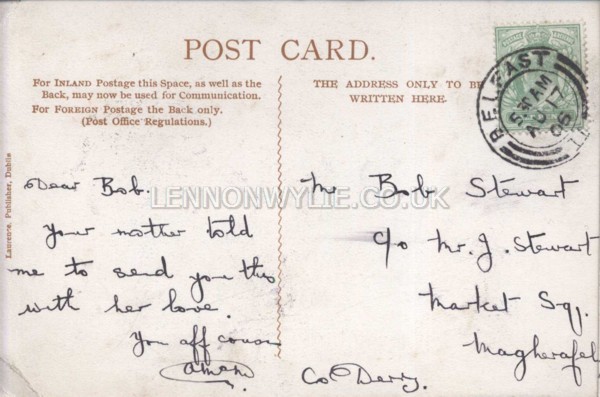 POST CARD.
For INLAND Postage this Space, as well as the
Back, may now be used for Communication.
For FOREIGN Postage the Back only.
(Post Office Regulations.)
THE ADDRESS ONLY TO BE
WRITTEN HERE.
BELFAST
AM
06
Laurence, Publisher, Dublin
LENNONWYLIE.CO.UK
Dear Bob.
Your mother told
me to send you this
with her love.
You aff cousin
Mr Bob Stewart
c/o Mr. J. Stewart
Market Sq.
Magherafel
Co Derry.